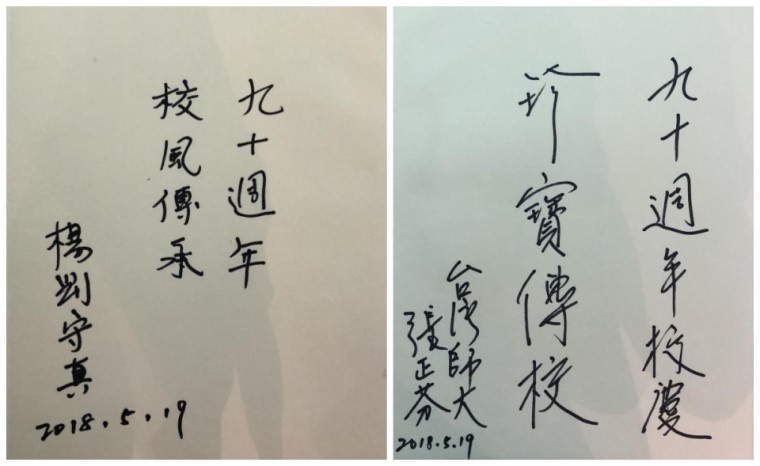 九十週年
校風傳承
楊劉守真
2018.5.19
九十週年校慶
珍寶傳校
台灣師大
張正芬
2018.5.19